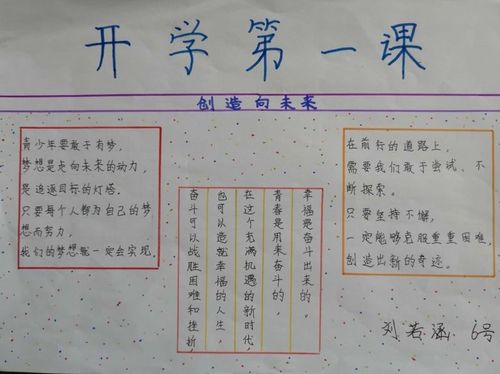 开学第一课
创造向未来
青少年要敢于有梦,
梦想是走向未来的动力,
是追逐目标的灯塔.
只要每个人都为自己的梦
想而努力,
我们的梦想就一定会实现.
幸福是奋斗出来的.
青春是用来奋斗的,
在这个充满机遇的新时代,
也可以造就幸福的人生,
奋斗可以战胜困难和挫折,
在前行的道路上,
需要我们敢于尝试、不
断探索。
只要坚持不懈,
一定能够克服重重困难,
创造出新的奇迹。
刘若涵 6号